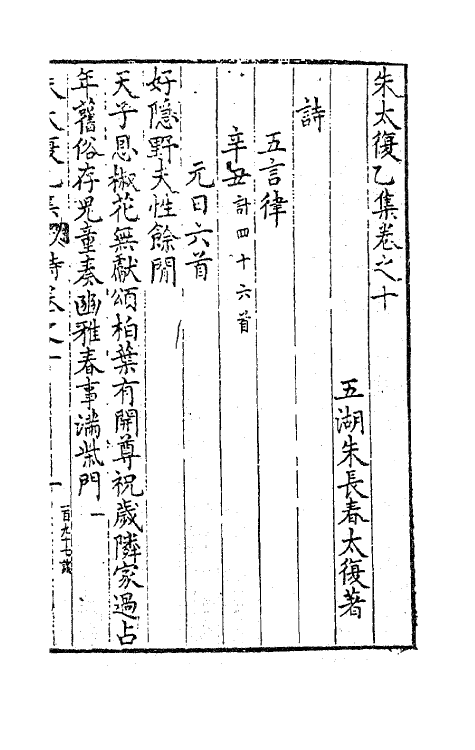 朱太復乙集卷之十
五湖朱長春太復著
詩
五言律
辛丑計四十六首
元日六首
好隱野夫性餘閒
天子恩椒花無獻頌柏葉有開尊祝歲隣家過占
年舊俗存兒童奏豳雅春事滿柴門一
太復乙集 詩卷之十
一百九十七